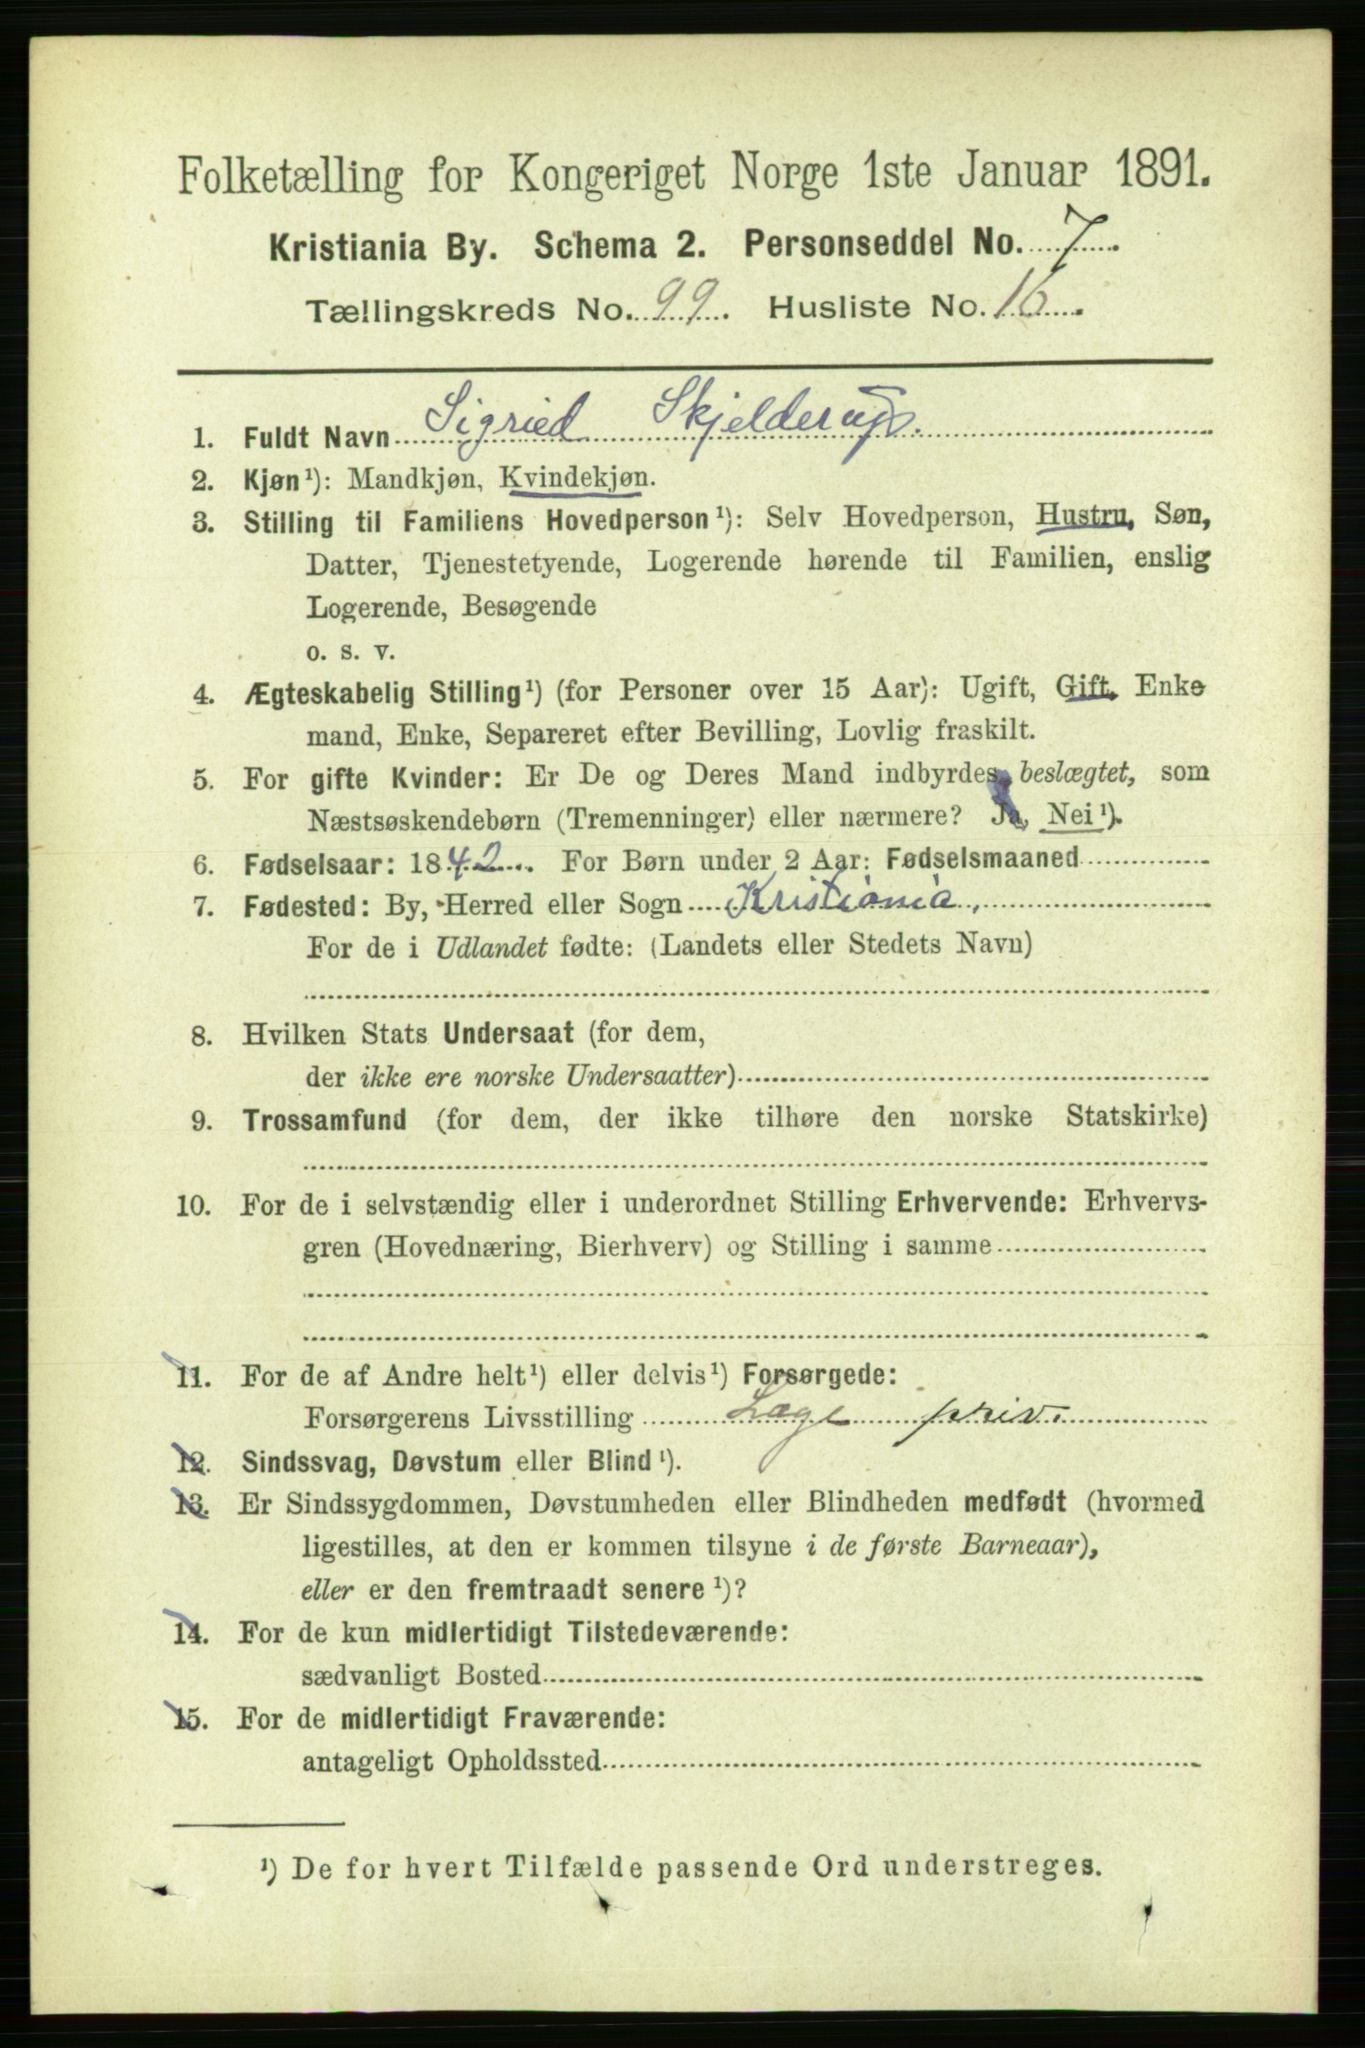 Folketælling for Kongeriget Norge 1ste Januar 1891.
Kristiania By. Schema 2. Personseddel No. 7.
Tællingskreds No. 99. Husliste No. 16.
1. Fuldt Navn Sigried Skjelderup.
2. Kjøn¹): Mandkjøn, Kvindekjøn.
3. Stilling til Familiens Hovedperson¹): Selv Hovedperson, Hustru, Søn,
Datter, Tjenestetyende, Logerende hørende til Familien, enslig
Logerende, Besøgende
o. s. v.
4. Ægteskabelig Stilling¹) (for Personer over 15 Aar): Ugift, Gift, Enke
mand, Enke, Separeret efter Bevilling, Lovlig fraskilt.
5. For gifte Kvinder: Er De og Deres Mand indbyrdes beslægtet, som
Næstsøskendebørn (Tremenninger) eller nærmere? Ja, Nei¹).
6. Fødselsaar: 1842. For Børn under 2 Aar: Fødselsmaaned
7. Fødested: By, Herred eller Sogn Kristiania,
For de i Udlandet fødte: (Landets eller Stedets Navn)
8. Hvilken Stats Undersaat (for dem,
der ikke ere norske Undersaatter)
9. Trossamfund (for dem, der ikke tilhøre den norske Statskirke)
10. For de i selvstændig eller i underordnet Stilling Erhvervende: Erhvervs-
gren (Hovednæring, Bierhverv) og Stilling i samme
11. For de af Andre helt¹) eller delvis¹) Forsørgede:
Forsørgerens Livsstilling Læge priv.
12. Sindssvag, Døvstum eller Blind¹).
13. Er Sindssygdommen, Døvstumheden eller Blindheden medfødt (hvormed
ligestilles, at den er kommen tilsyne i de første Barneaar),
eller er den fremtraadt senere¹)?
14. For de kun midlertidigt Tilstedeværende:
sædvanligt Bosted
15. For de midlertidigt Fraværende:
antageligt Opholdssted
¹) De for hvert Tilfælde passende Ord understreges.